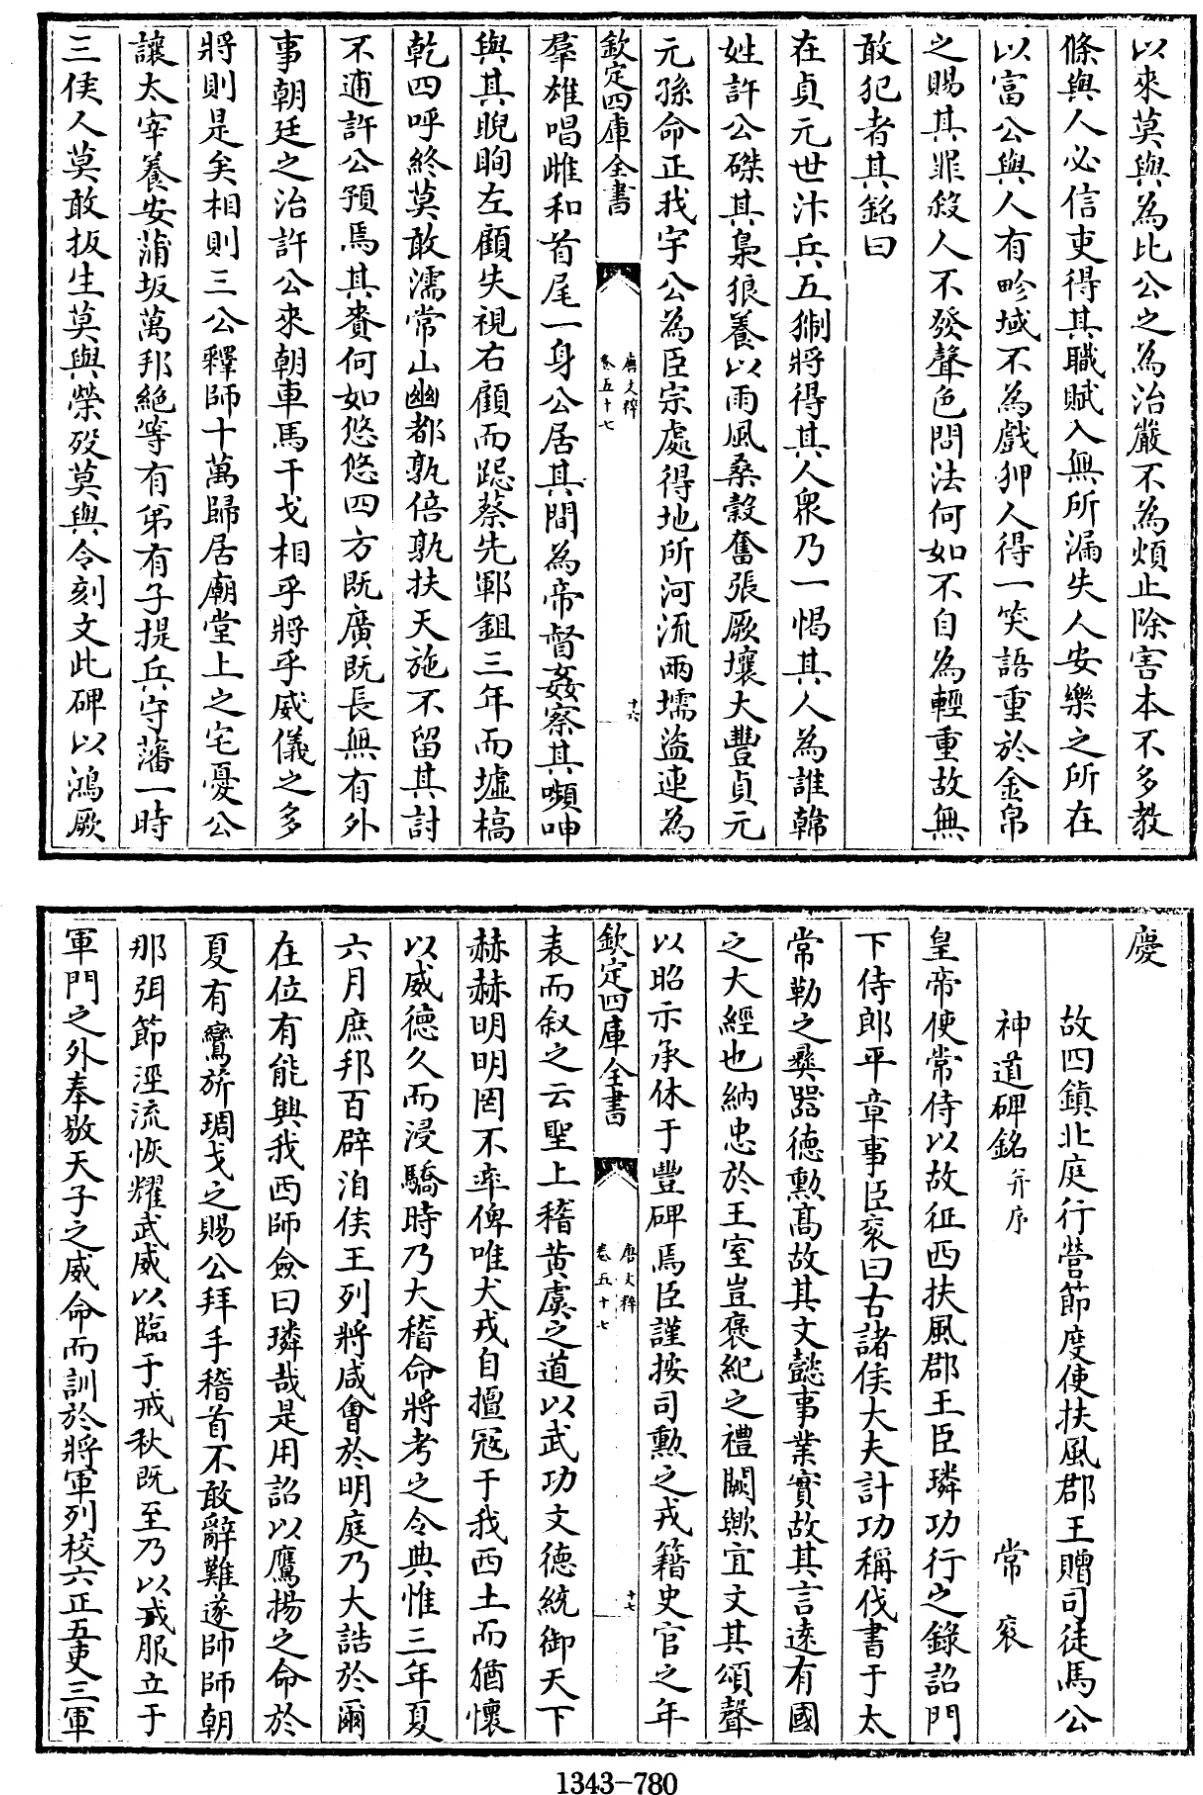 以來莫與為比公之為治嚴不為煩止除害本不多教
條與人必信吏得其職賦入無所漏失人安樂之所在
以富公與人有畛域不為戲狎人得一笑語重於金帛
之賜其罪殺人不發聲色問法何如不自為輕重故無
敢犯者其銘曰
在貞元世汴兵五猘將得其人衆乃一愒其人為誰韓
姓許公磔其梟狼養以雨風桑穀奮張厥壤大豐貞元
元孫命正我宇公為臣宗處得地所河流兩壖盜連為
欽定四庫全書
唐文粹
卷五十七
十六
羣雄唱雌和首尾一身公居其間為帝督姦察其嚬呻
與其睨眴左顧失視右顧而跽蔡先鄆鉏三年而墟槁
乾四呼終莫敢濡常山幽都孰倍孰扶天施不留其討
不逋許公預焉其賚何如悠悠四方既廣既長無有外
事朝廷之治許公來朝車馬干戈相乎將乎威儀之多
將則是矣相則三公釋師十萬歸居廟堂上之宅憂公
讓太宰養安蒲坂萬邦絶等有弟有子提兵守藩一時
三侯人莫敢扳生莫與榮歿莫與令刻文此碑以鴻厥
慶
故四鎮北庭行營節度使扶風郡王贈司徒馬公
神道碑銘并序
常衮
皇帝使常侍以故征西扶風郡王臣璘功行之錄詔門
下侍郎平章事臣衮曰古諸侯大夫計功稱伐書于太
常勒之彝器德勳高故其文懿事業實故其言遠有國
之大經也納忠於王室豈褒紀之禮闕歟宜文其頌聲
以昭示承休于豐碑焉臣謹按司勲之戎籍史官之年
欽定四庫全書
唐文粹
卷五十七
十七
表而叙之云聖上稽黄虞之道以武功文德統御天下
赫赫明明罔不率俾唯犬戎自擅冦于我西土而猶懷
以威德久而浸驕時乃大稽命將考之令典惟三年夏
六月庶邦百辟洎侯王列將咸會於明庭乃大誥於爾
在位有能興我西師僉曰璘哉是用詔以鷹揚之命於
夏有鸞旂琱戈之賜公拜手稽首不敢辭難遂帥師朝
那弭節涇流恢耀武威以臨于戒秋既至乃以戎服立于
軍門之外奉敬天子之威命而訓於將軍列校六正五吏三軍
1343-780